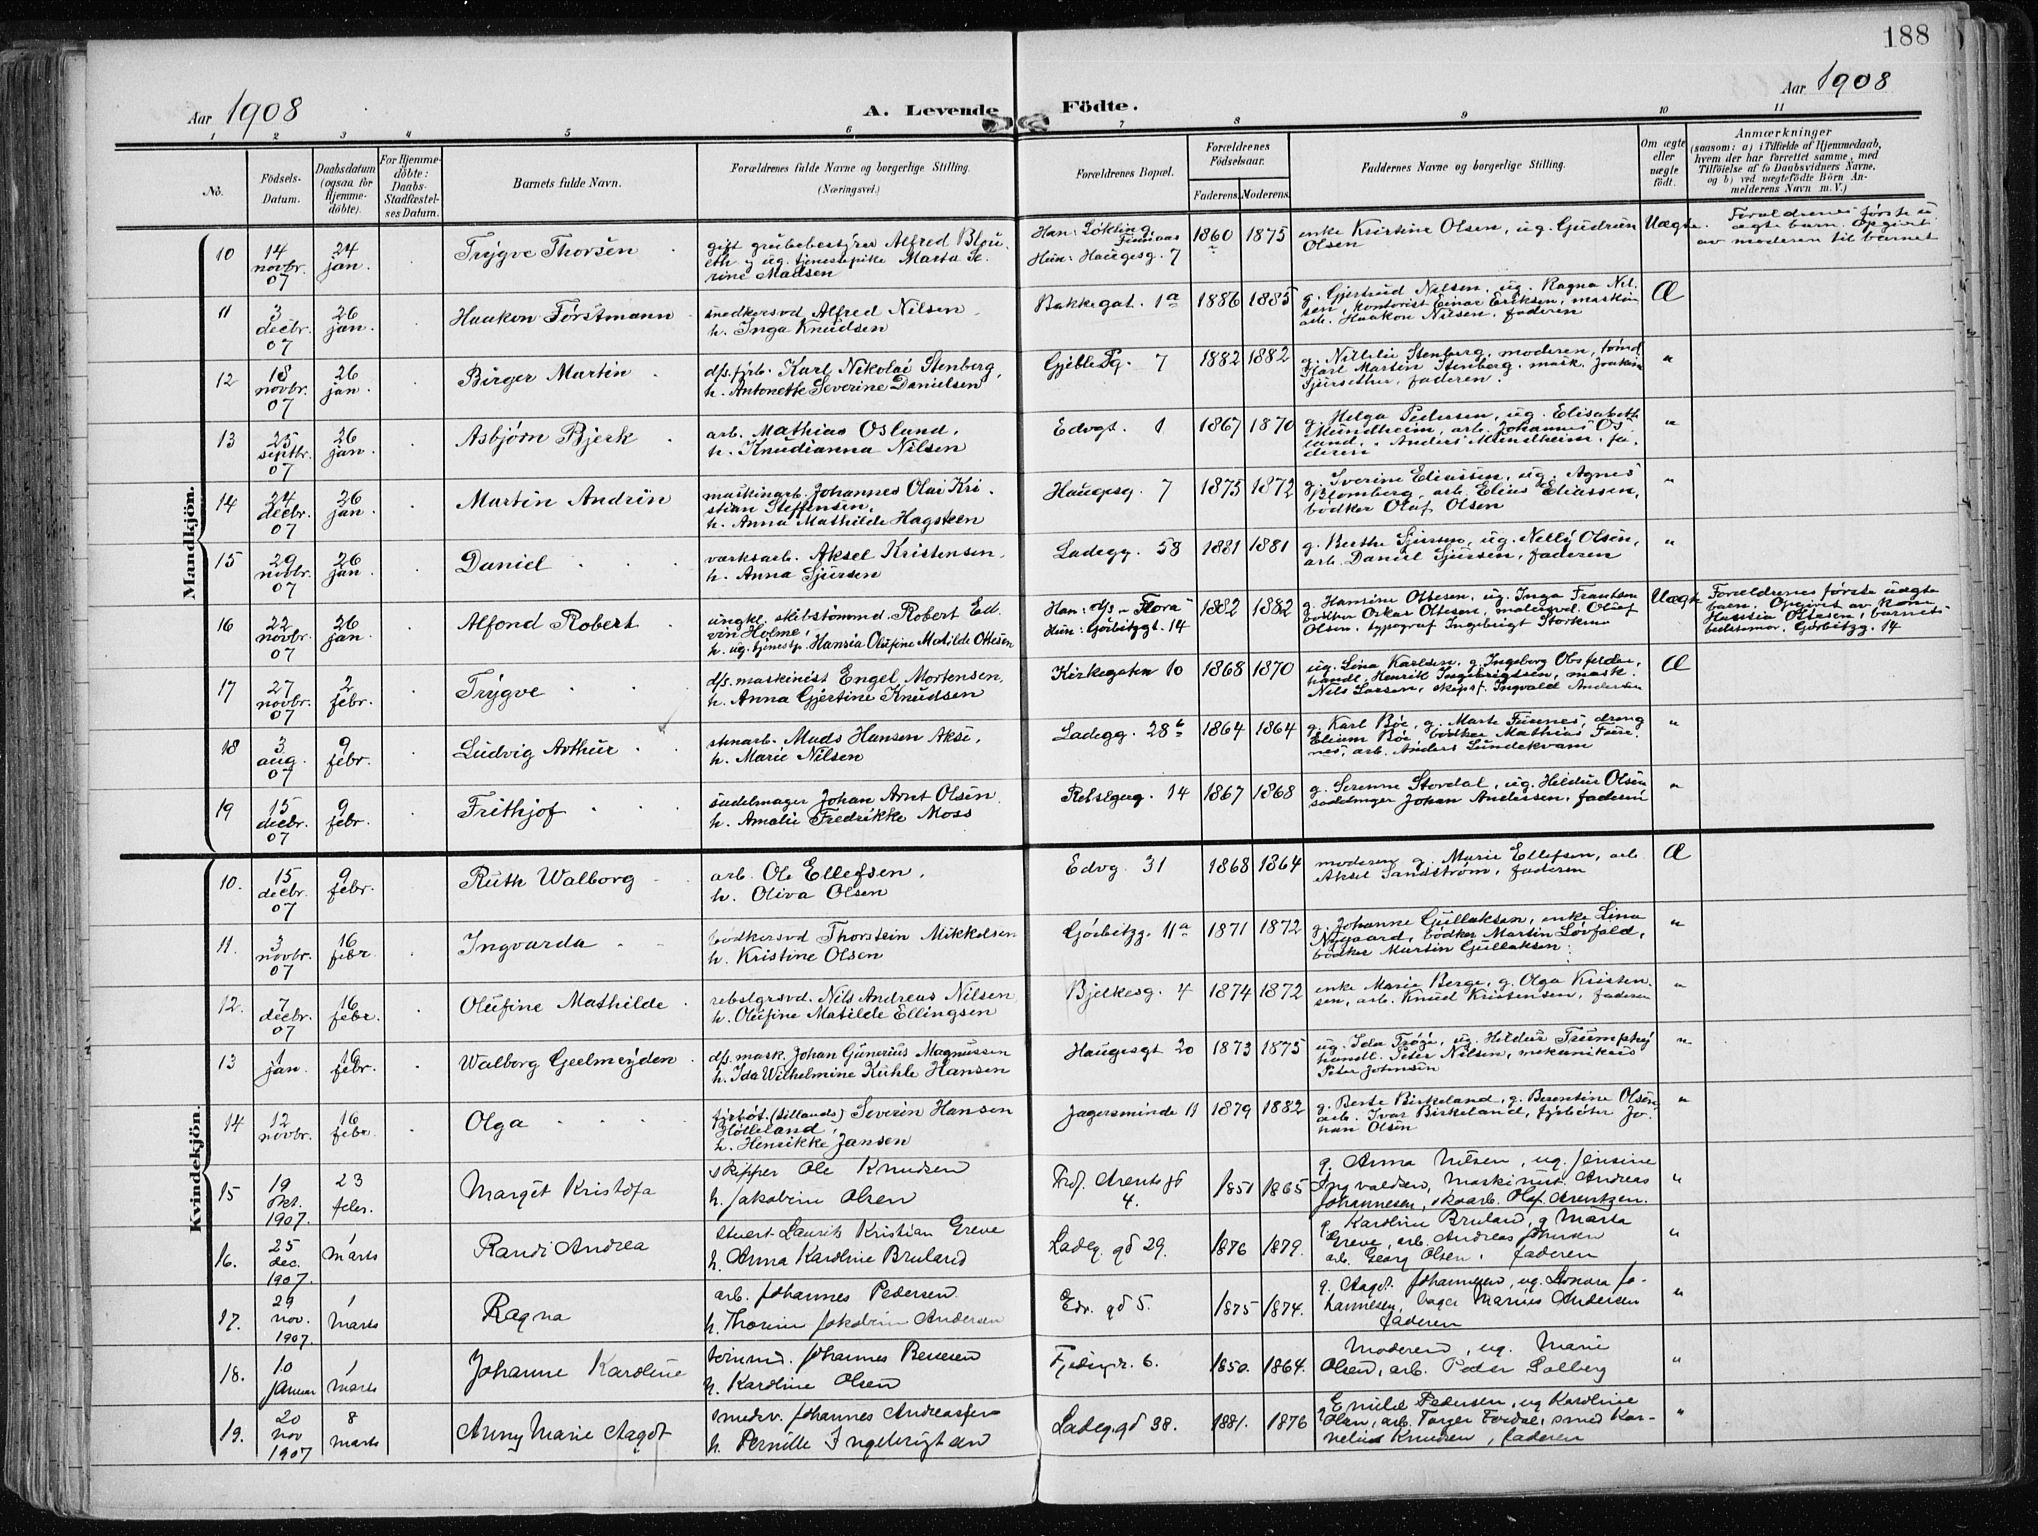 188
Aar 1908
A. Levende Födte.
Aar 1908
1 2 3 4 5 6 7 8 9 10 11
No.
Födsels-Datum.
Daabsdatum (ogsaa for Hjemme-döbte).
For Hjemme-döbte: Daabs-Stadfæstel-ses Datum.
Barnets fulde Navn.
Forældrenes fulde Navne og borgerlige Stilling.
(Næringsvei.)
Forældrenes Bopæl.
Forældrenes Födselsaar.
Faderens. Moderens.
Faddernes Navne og borgerlige Stilling.
Om ægte eller uægte födt.
Anmærkninger
(saasom: a) i Tilfælde af Hjemmedaab, hvem der har forrettet samme, med Tilföielse af to Daabsvidners Navne, og b) ved uægtefödte Börn An-melderens Navn m. V.)
Mandkjön.
10 14 novbr. 07 24 jan. Trygve Thorsen
gift grubebestyrer Alfred Blou-
eth y ug. tjenestepike Marta Se-
rine Madsen
Han: Løkling Finnaas
Hun: Haugesg. 7
1860 1875
enke Kristine Olsen, ug. Gudrun
Olsen
Uægte.
Forældrenes første u-
ægte barn. Opgivet
av moderen til barnet
11 3 decbr. 07 26 jan. Haakon Førstmann
snedkersvd Alfred Nilsen
h. Inga Knudsen
Bakkegat. 1a 1886 1885
g. Gjertrud Nilsen, ug. Ragna Nil-
sen, kontorist Einar Eriksen, maskin
arb. Haakon Nilsen, faderen
Æ
12 18 novbr. 07 26 jan. Birger Martin
d/s. fyrb. Karl Nikolai Stenberg,
h. Antonette Severine Danielsen
Gjeble Pg. 7 1882 1882
g. Nillelie Stenberg, moderen, tømd
Karl Martin Stenberg, mask. Joakim
Sjursether, faderen.
"
13 25 septbr. 07 26 jan. Asbjørn Bjerk
arb. Mathias Osland,
h. Knudianna Nilsen
Edvgt. 1 1867 1870
g. Helga Pedersen, ug. Elisabeth
Mundheim, arb. Johannes Os-
land, " Anders Mundheim, fa-
deren
"
14 24 decbr. 07 26 jan. Martin Andrin
maskinarb. Johannes Olai Kri-
stian Steffensen,
h. Anna Mathilde Hagsteen
Haugesg. 7 1875 1872
g. Iverine Eliassen, ug. Agnes
Blomberg, arb. Elius Eliassen,
bødker Olaf Olsen
"
15 29 novbr. 07 26 jan. Daniel
værksarb. Aksel Kristensen,
h. Anna Sjursen
Ladegg. 58 1881 1881
g. Berthe Sjursen, ug. Nelly Olsen,
arb. Daniel Sjursen, faderen
"
16 22 novbr. 07 26 jan. Alfond Robert
ungk. skibstømmd Robert Ed-
vin Holme,
h. ug. tjenestp. Hansia Olufine Matilde Ottesen
Han: d/s "Flora"
Hun: Gørbitzgt. 14
1882 1882
g. Hansine Ottesen, ug. Inga Frantsen
bødker Oskar Ottesen, malersvd. Oluf
Olsen, typograf Ingebrigt Storknes
Uægte
Forældrenes første uægte
barn. Opgivet av kone
Hansia Ottesen, barnets
bedstemor, Gørbitzg. 14
17 27 novbr. 07 2 febr. Trygve
d/s. maskinist Engel Mortensen,
h. Anna Gjertine Knudsen
Kirkegaten 10 1868 1870
ug. Lina Karlsen, g. Ingeborg Obsfelder,
handl. Henrik Ingebrigtsen, mask.
Nils Larsen, skipsf. Ingvald Andersen
Æ
18 3 aug. 07 9 febr. Ludvig Arthur
stenarb. Mads Hansen Akse,
h. Marie Nilsen
Ladegg. 28b 1864 1864
g. Karl Bøe, g. Marte Furenes, dreng
Elium Bøe, bødker Mathias Fure-
nes, arb. Anders Lundekvam
"
19 15 decbr. 07 9 febr. Frithjof
sadelmager Johan Arnt Olsen
h. Amalie Fredrikke Moss
Rebslgag. 14 1867 1868
g. Serenne Stordal, ug. Hildur Olsen
saddmger Johan Andersen, faderen
"
Kvindekjön.
10. 15 decbr. 07 9 febr. Ruth Walborg
arb. Ole Ellefsen,
h. Oliva Olsen
Edvg. 31 1868 1864
moderen, g. Marie Ellefsen, arb.
Aksel Sandstrøm, faderen
Æ
11. 3 novbr. 07 16 febr. Ingvarda
bødkersvd Thorstein Mikkelsen
h. Kristine Olsen
Gørbitzg. 11a 1871 1872
g. Johanne Gullaksen, enke Lina
Nygaard, bødker Martin Løvfald,
bødker Martin Gullaksen
"
12. 7 decbr. 07 16 febr. Olufine Mathilde
rebslgrsvd. Nils Andreas Nilsen
h. Olufine Matilde Ellingsen
Bjelkesg. 4 1874 1872
enke Marie Berge, g. Olga Kristen-
sen, arb. Knud Kristensen, faderen
"
13 1 jan. 16 febr. Walborg Geelmeyden
d/s. mask. Johan Gunerius Magnussen
h. Ida Wilhelmine Kühle Hansen
Haugesgt 20 1873 1875
ug. Ida Trøge, ug. Hildur Trumpfrey
handl. Peter Nilsen, mekanikus
Peter Johnsen
"
14 12 novbr. 16 febr. Olga
fyrbøt. (tillands) Severin Hansen
Holleland,
h. Henrikke Jansen
Jagersminde 11 1879 1882
g. Berte Birkeland, g. Berentine Olsen
arb. Ivar Birkeland, fyrbøter Jo-
han Olsen
"
15 19 okt. 1907. 23 febr. Margit Kristofa
skipper Ole Knudsen
h. Jakobine Olsen
Prof. Arents gt 4. 1851 1865
g. Anna Nilsen, ug. Jensine
Ingvaldsen, maskinist Andreas
Johannesen, skoarb. Olaf Arentzen.
"
16. 25 dec. 1907. 1 marts Randi Andrea
stuert Laurits Kristian Greve
h. Anna Karoline Bruland
Ladeg. gd 29. 1876 1879.
g. Karoline Bruland, g Marta
Greve, arb. Andreas Johnsen
arb. Georg Olsen, faderen
"
17. 29 nov. 1907. 1 marts Ragna
arb. Johannes Pedersen
h. Thorine Jakobine Andersen
Edv. gd 5. 1875 1874.
g. Aagot Johannesen, ug. Leonora Jo-
hannesen, bager Marius Andersen
faderen
"
18. 10 Januar 1 marts Johanne Karoline
tømmd. Johannes Bensen
h. Karoline Olsen
Fjeldgd. 6. 1850. 1864.
Moderen, ug. Marie
Olsen, arb. Peder Solberg
"
19. 20 nov 1907 8 marts Anny Marie Aagot
smedsv. Johannes Andreassen
h. Pernille Ingebrigtsen
Ladeg. gd 38. 1881. 1876
g Emilie Pedersen, ug Karoline
Olsen, arb. Torger Fordal, smed Kor-
nelius Knudsen, faderen
"